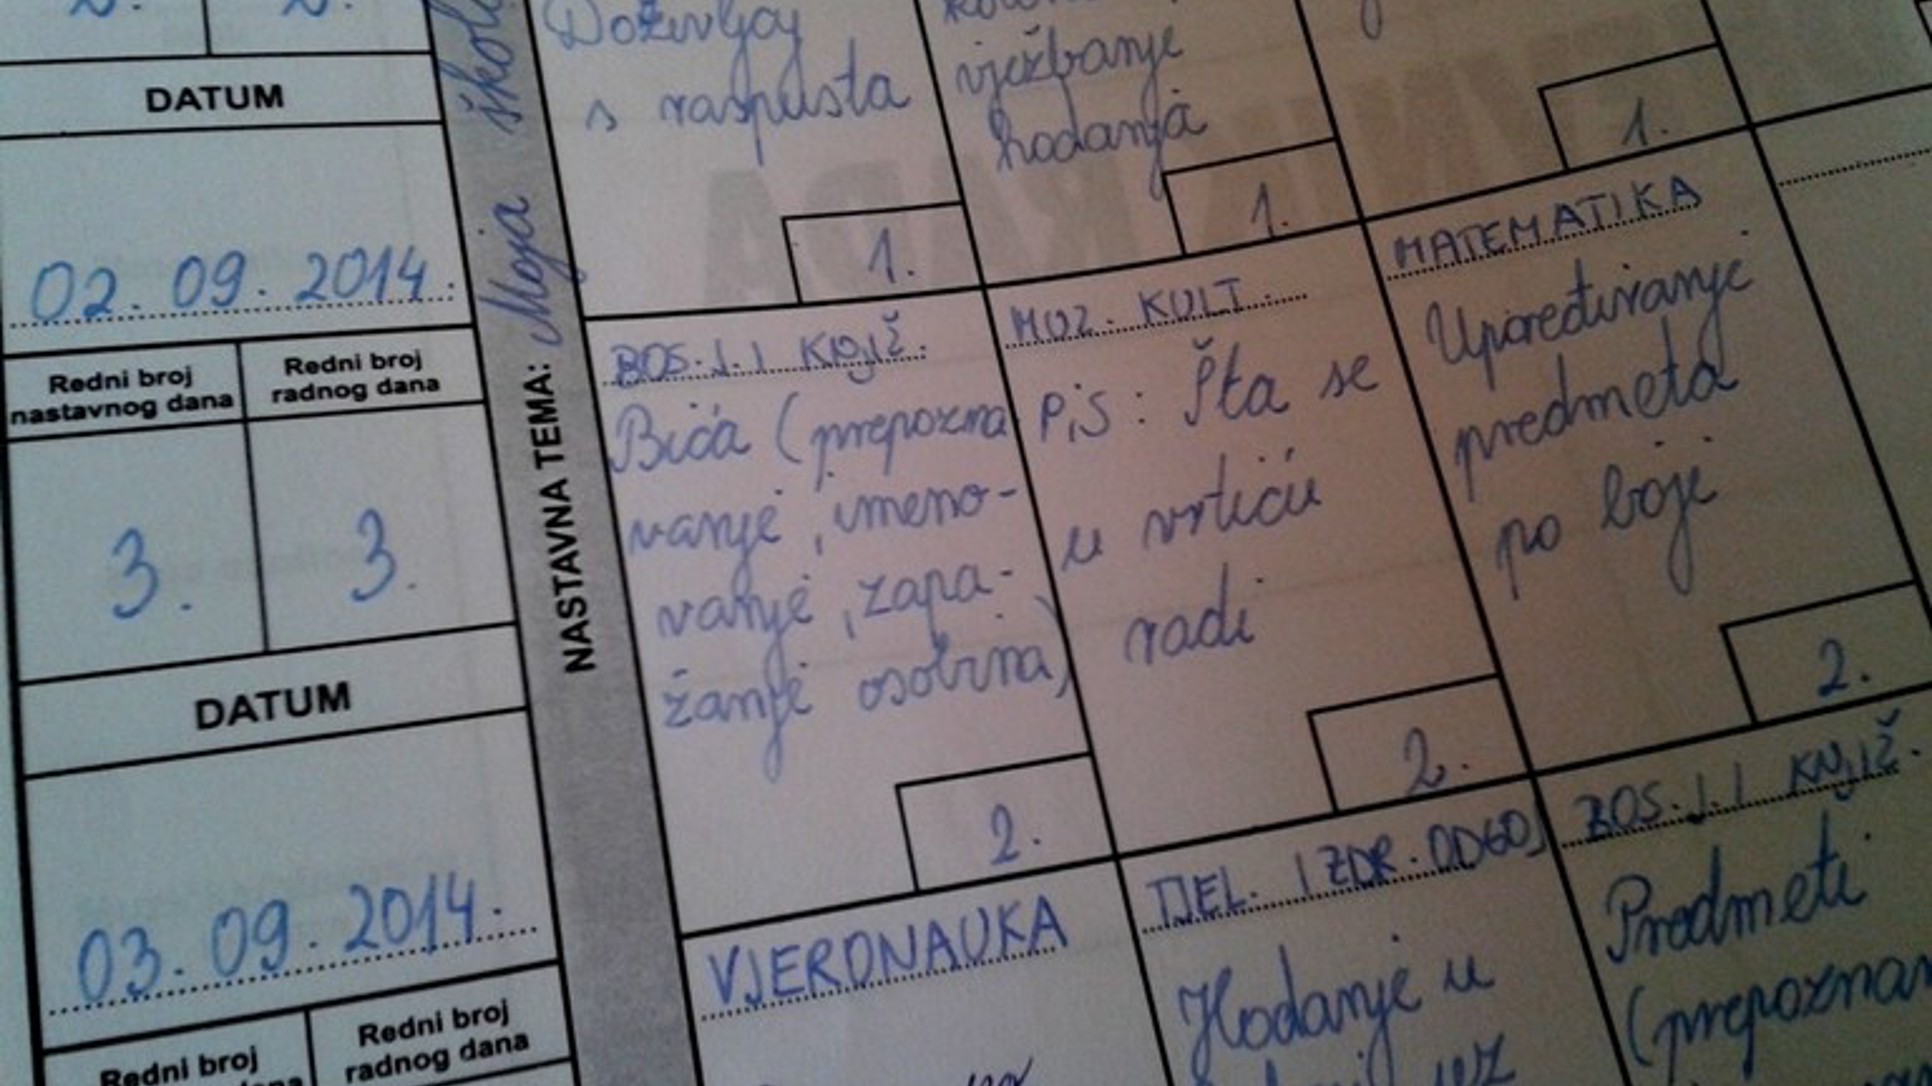 2. 2.
DATUM
02. 09. 2014.
Redni broj
nastavnog dana
Redni broj
radnog dana
3. 3.
DATUM
03. 09. 2014.
Redni broj
Redni broj
radnog dana
NASTAVNA TEMA: Moja
Doživljaj
s raspusta
1.
vježbanje
hodanja
1.
1.
BOS. J. I KNJIŽ.
Bića (prepozna
vanje, imeno-
vanje, zapa-
žanje osobina)
2.
MUZ. KULT.
Pjs: Šta se
u vrtiću
radi
2.
MATEMATIKA
Upoređivanje
predmeta
po boji
2.
VJERONAUKA
TJEL. I ZDR. ODGOJ
Hodanje u
BOS. J. I KNJIŽ.
Predmeti
(prepoznav